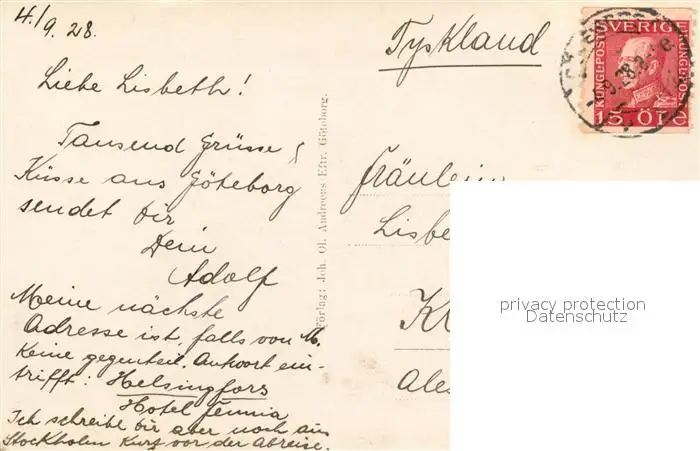 4./9.28.
Liebe Lisbeth!
Tausend Grüsse &
Küsse aus Göteborg
sendet Dir
Dein
Adolf
Meine nächste
Adresse ist, falls von M.
keine gegenteil. Antwort ein-
trifft: Helsingfors
Hotel Fennia
Ich schreibe Dir aber noch aus
Stockholm kurz vor der Abreise.
Förlag: Joh. Ol. Andreens Eftr. Göteborg.
Tyskland
SVERIGE
KUNGL. POST
KUNGL. POST
15 ÖRE
Fräulein
Lisbe
K
Ale
privacy protection
Datenschutz